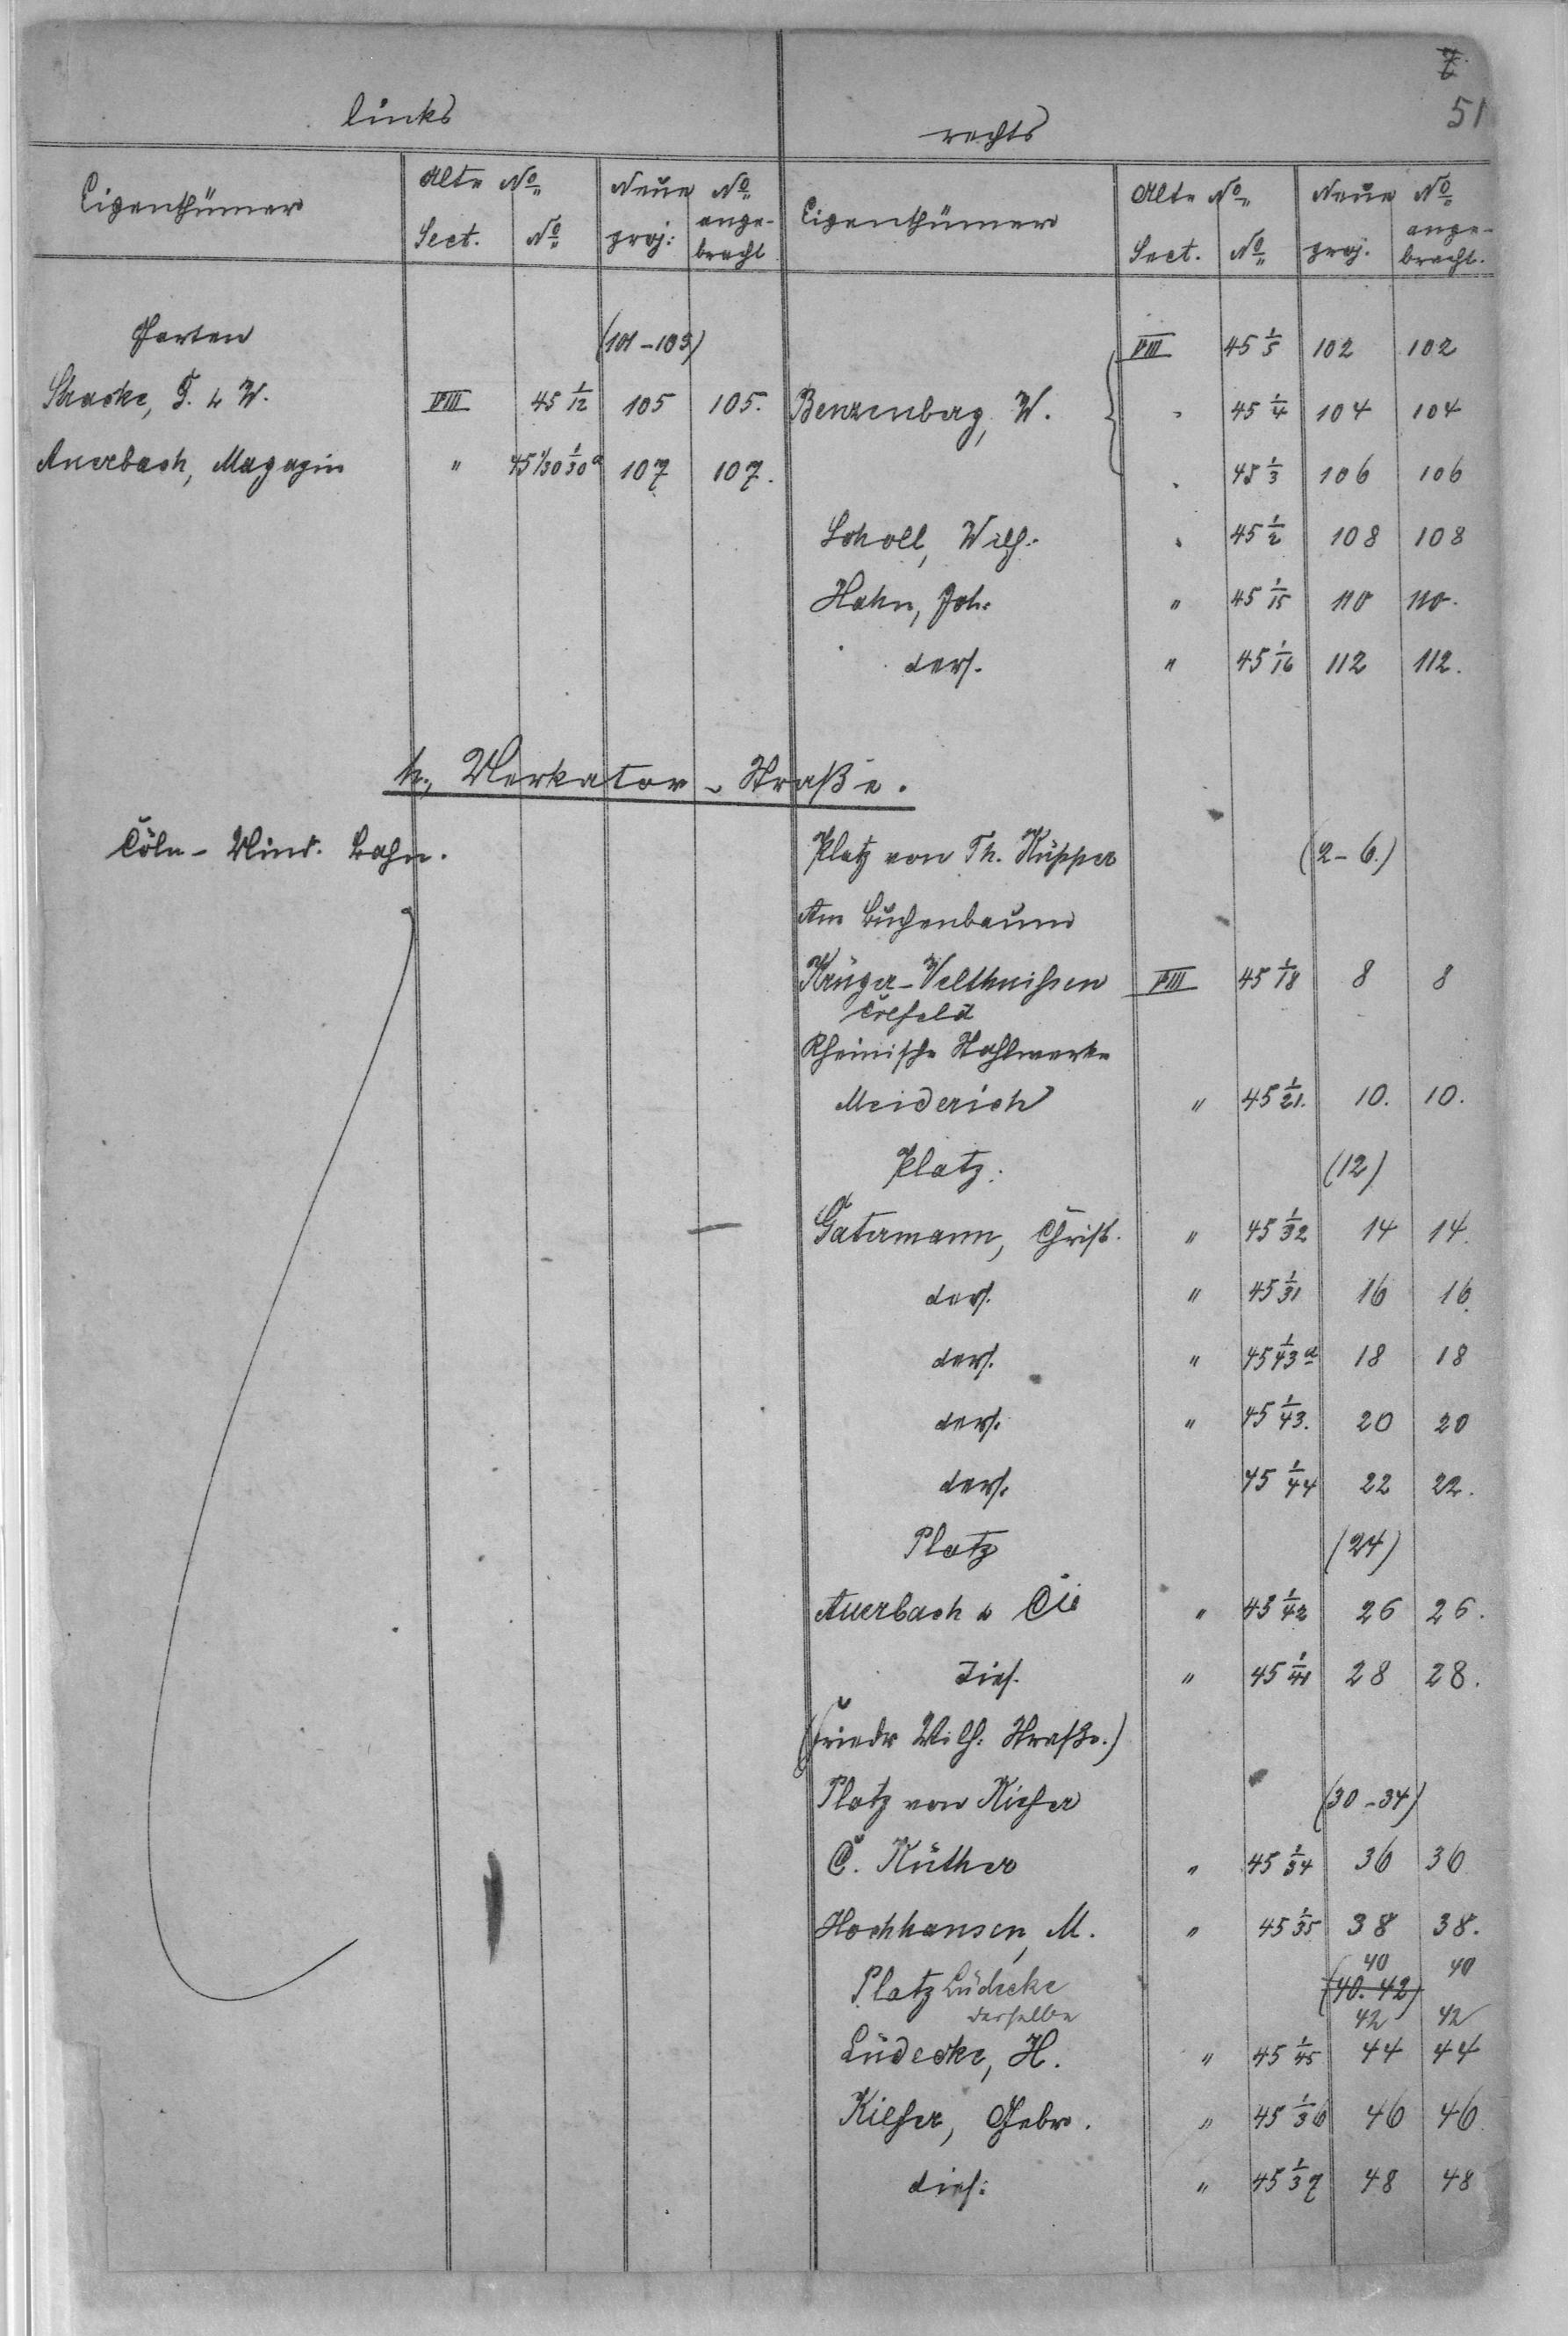 7.
51
links
rechts
Eigenthümer Alte No Neue No Eigenthümer Alte No Neue No
Sect. No proj: ange-bracht Sect. No proj. ange-bracht.
Garten (101-103) VIII 45 1/5 102 102
Stracke, F. & W. VIII 45 1/12 105 105. Benzenberg, W. " 45 1/4 104 104
Auerbach, Magazin " 45 1/30 1/30a 107 107. " 45 1/3 106 106
Scholl, Wilh: " 45 1/2 108 108
Hahn, Joh: " 45 1/15 110 110.
ders. " 45 1/16 112 112.
Merkator-Straße.
Cöln-Mind. Bahn. Platz von Th. Küpper (2-6.)
Am Buchenbaum
Krüger-Velthuißen VIII 45 1/18 8 8
Crefeld
Rheinische Stahlwerke
Meiderich " 45 1/21. 10. 10.
Platz. (12)
Gatermann, Christ. " 45 1/32 14 14.
ders. " 45 1/31 16 16.
ders. " 45 1/43a 18 18
ders. " 45 1/43. 20 20
ders. 45 1/44 22 22.
Platz (24)
Auerbach & Cie " 45 1/42 26 26.
dies. " 45 1/41 28 28.
(Friedr Wilh: Straße.)
Platz von Kiefer (30-34)
C. Küther " 45 1/34 36 36
Hochhausen, M. " 45 1/35 38 38.
40 40
Platz Lüdecke (40. 42)
derselbe 42 42
Lüdecke, H. " 45 1/45 44 44
Kiefer, Gebr. " 45 1/36 46 46
dies: " 45 1/37 48 48